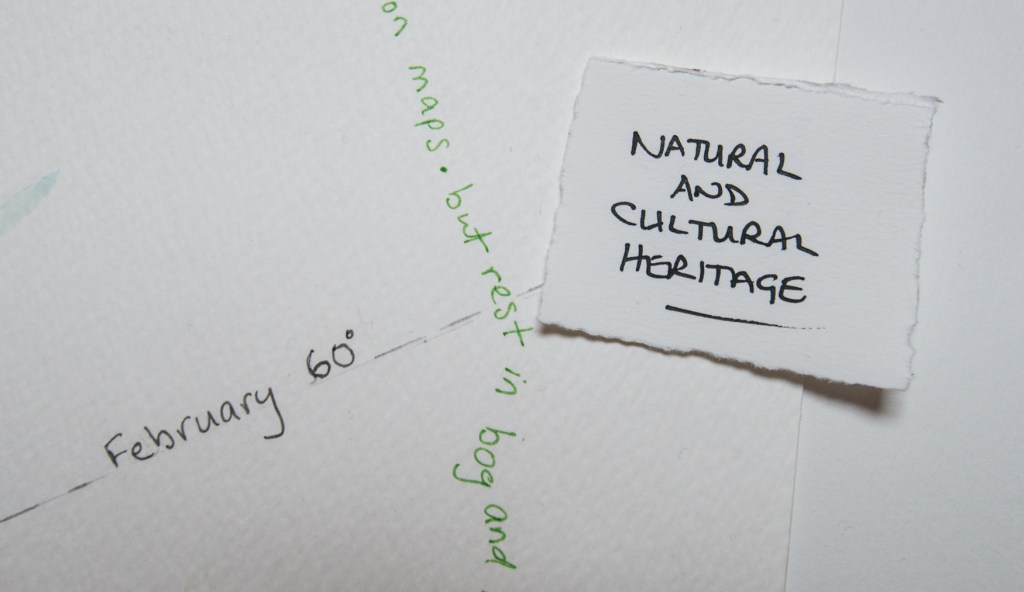 on maps. but rest in bog and
NATURAL
AND
CULTURAL
HERITAGE
February 60°